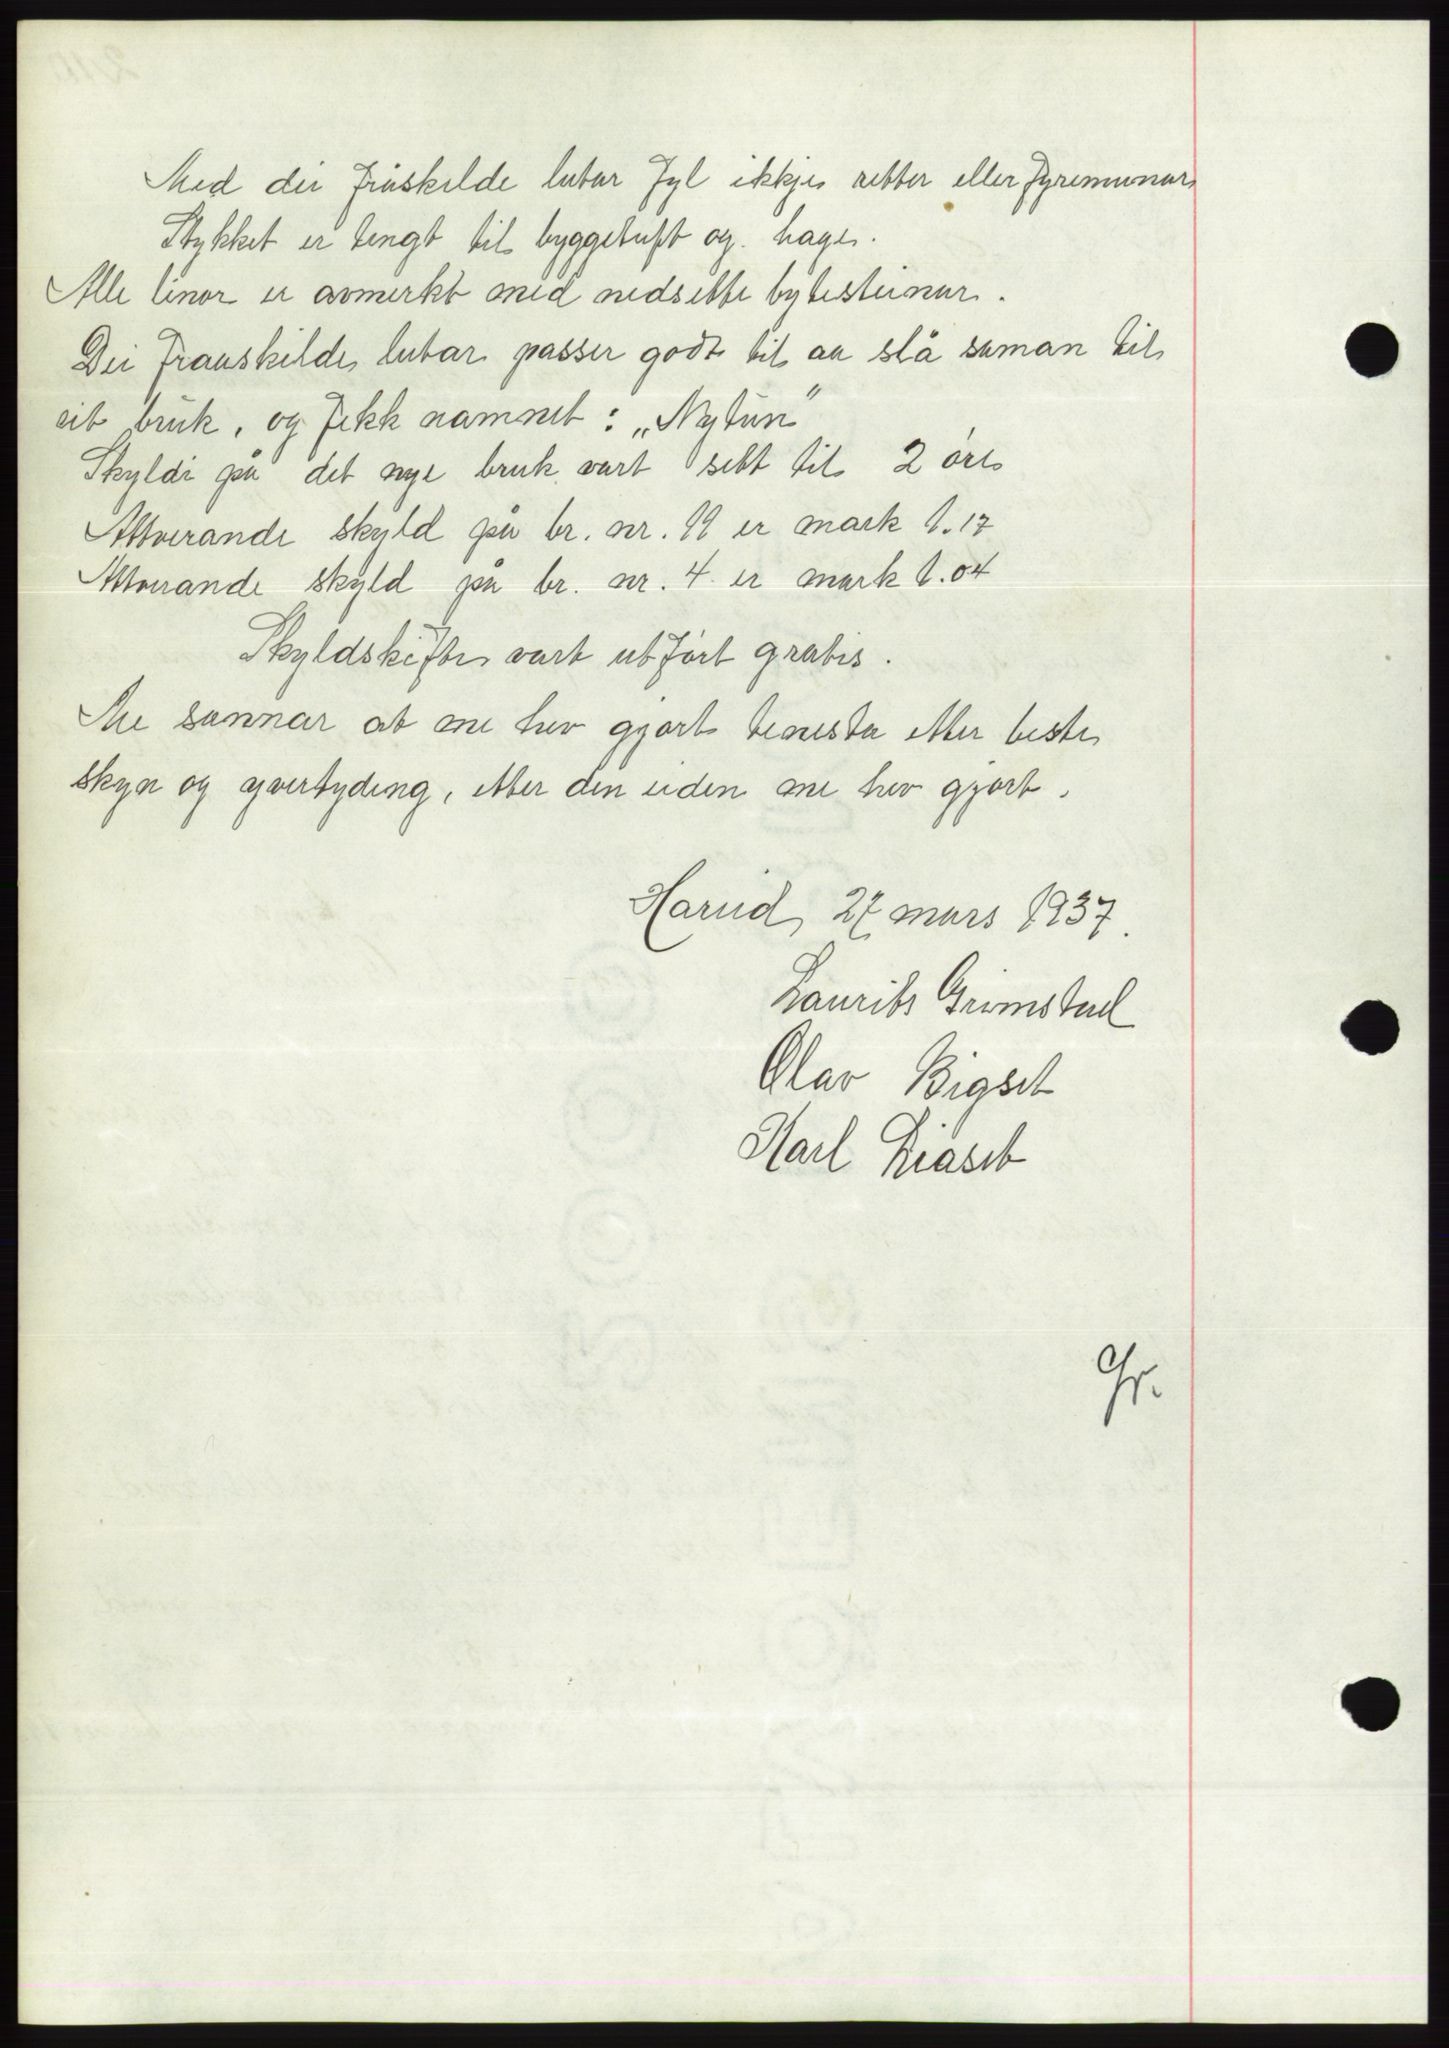 Med dei fråskilde lutar fyl ikkje retter eller fyremunar
Stykket er tengt til byggetuft og hage.
Alle linor er avmerkt med nedsette bytesteinar.
Dei fraaskilde lutar passer godt til aa slå saman til
eit bruk, og fekk namnet: „Nytun"
Skyldi på det nye bruk vart sett til 2 öre
Attverande skyld på br. nr. 19 er mark 1.17
Attverande skyld på br. nr. 4 er mark 1.04
Skyldskifte vart utfört gratis.
Me sannar at me hev gjort tenesta etter beste
skyn og yvertyding, etter den eiden me hev gjort.
Hareid, 27 mars 1937.
Laurits Grimstad
Olav Bigset
Karl Liaset
Gr.